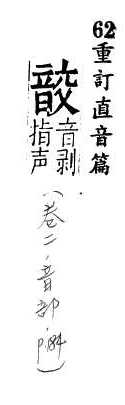 62重訂直音篇
䪨
音剥
指声
(卷二·音部·p.184)